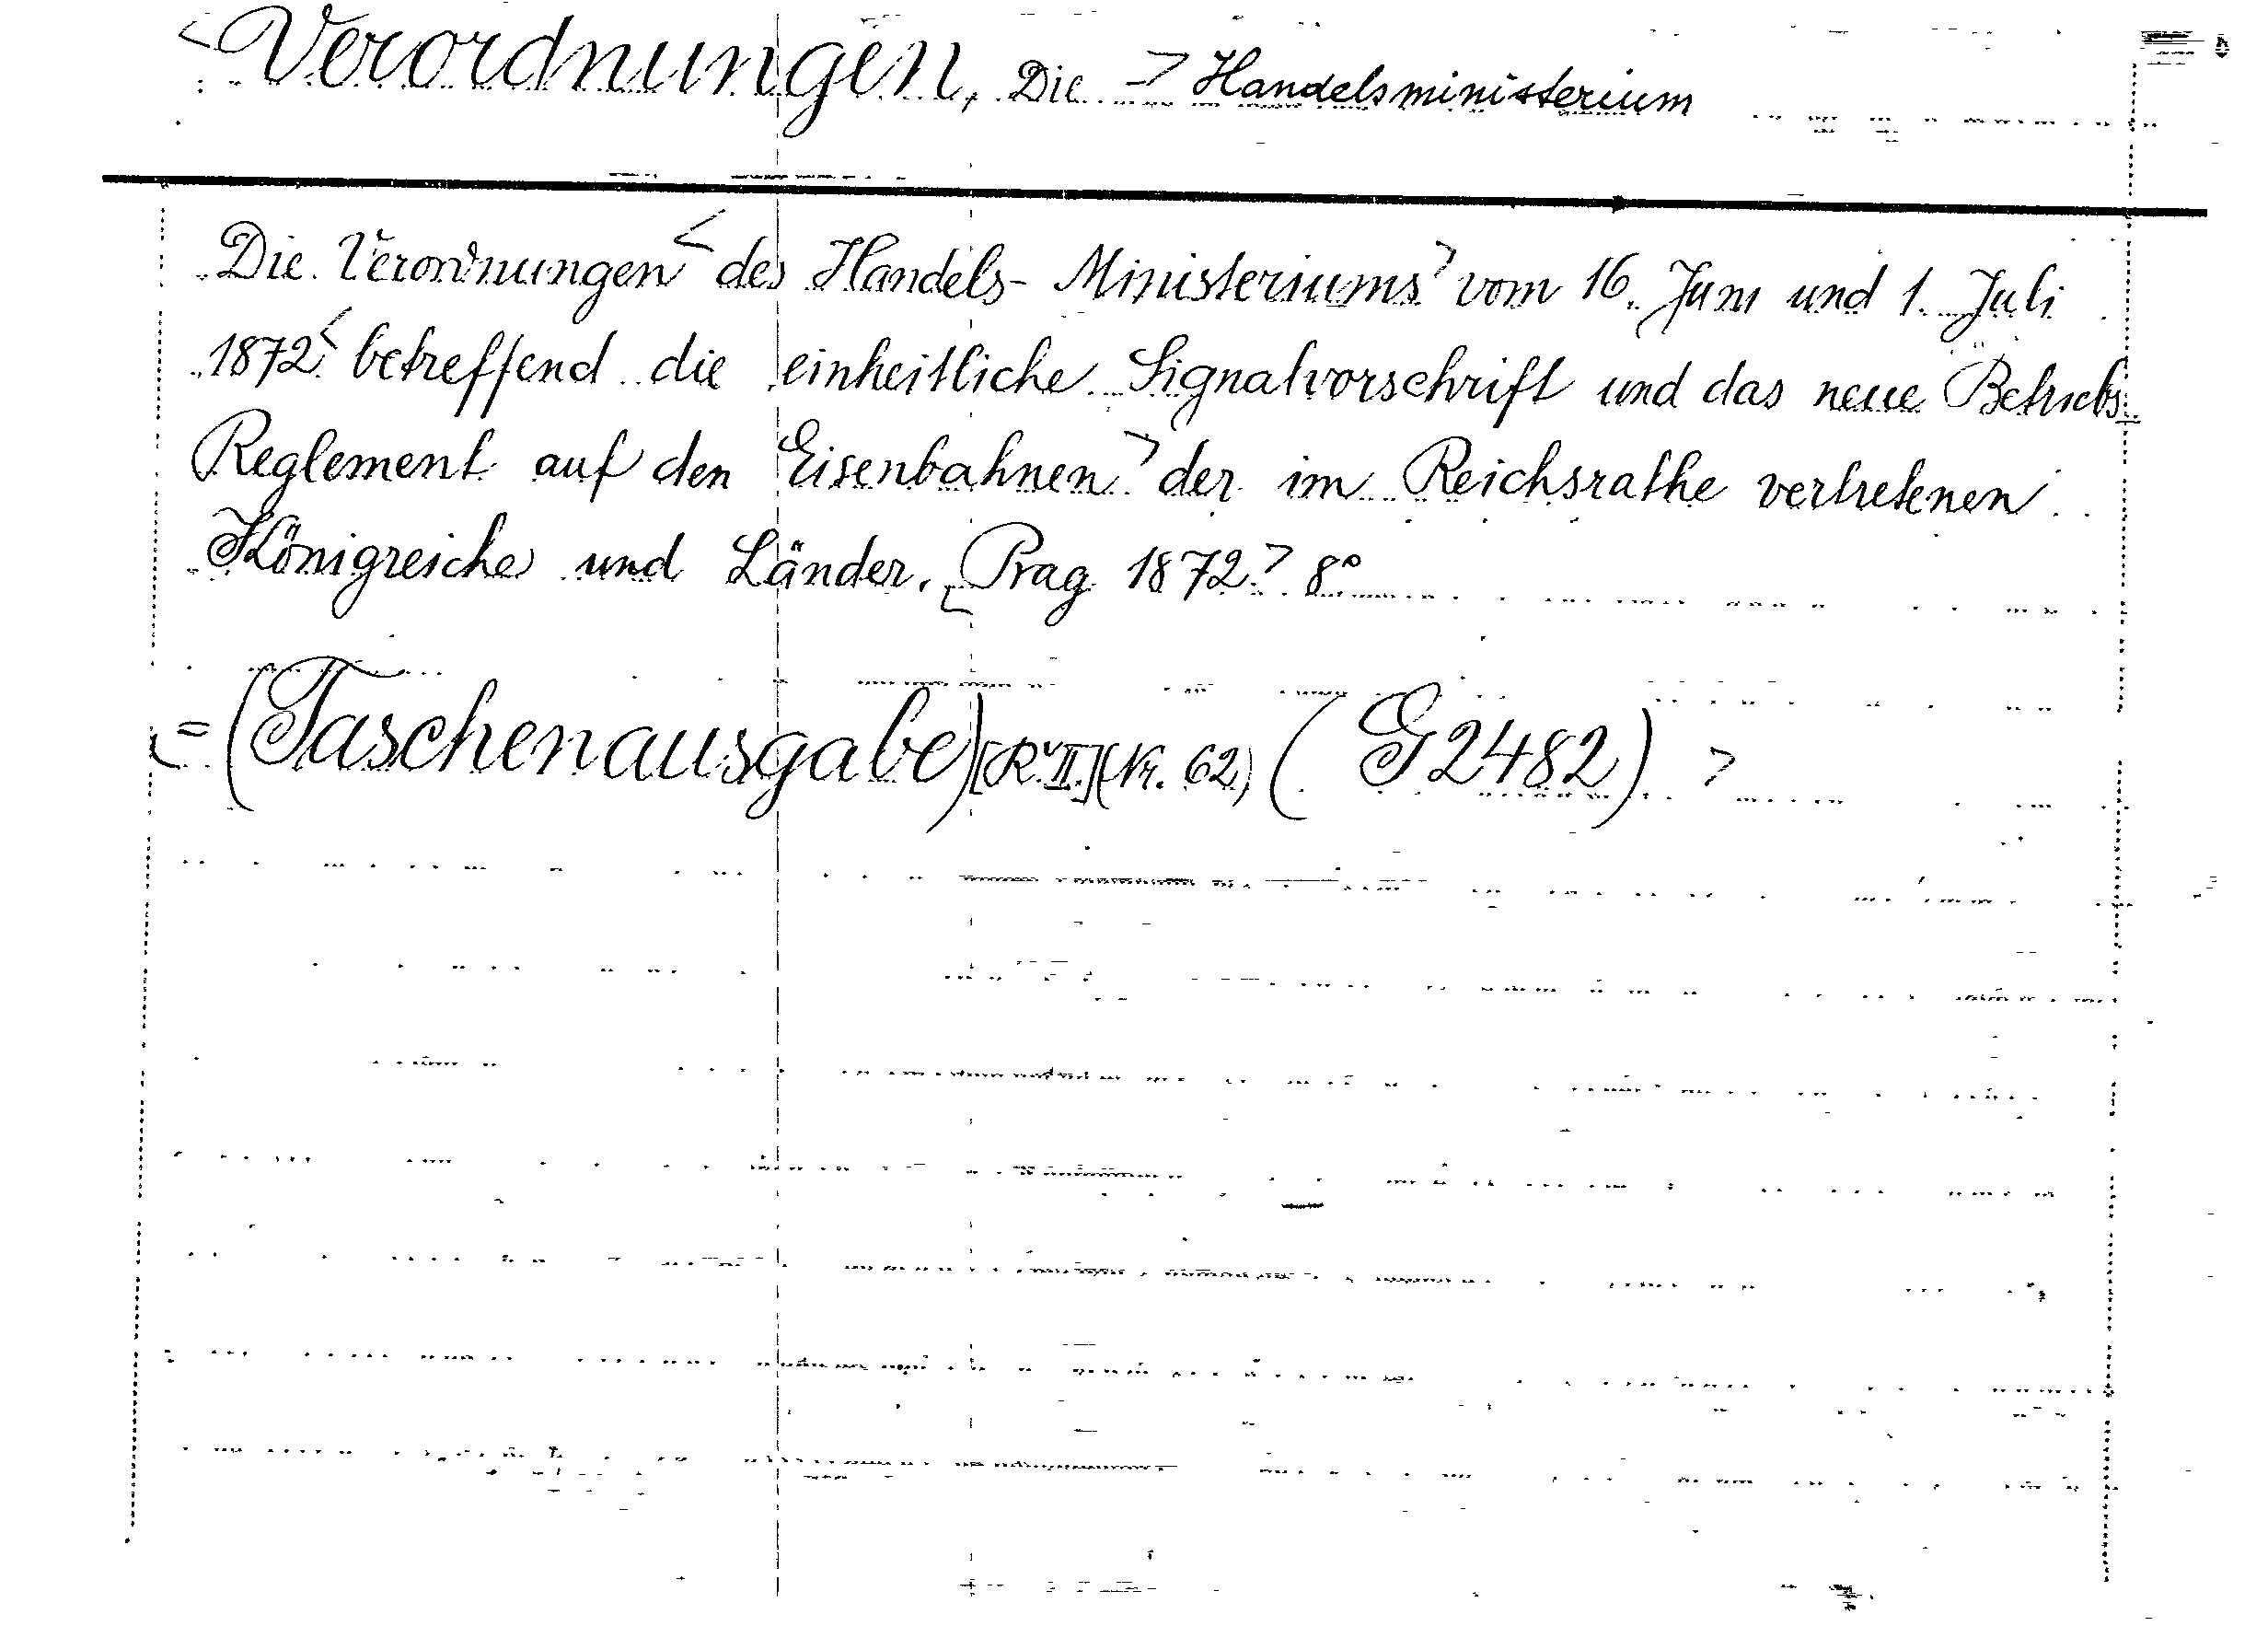 <Verordnungen, Die -> Handelsministerium
Die Verordnungen < des Handels-Ministeriums > vom 16. Juni und 1. Juli
1872 < betreffend die einheitliche Signalvorschrift und das neue Betriebs-
Reglement auf den Eisenbahnen > der im Reichsrathe vertretenen
Königreiche und Länder. [Prag 1872.> 8°
=(Taschenausgabe) [R.II.] (Nr. 62) (G2482) >